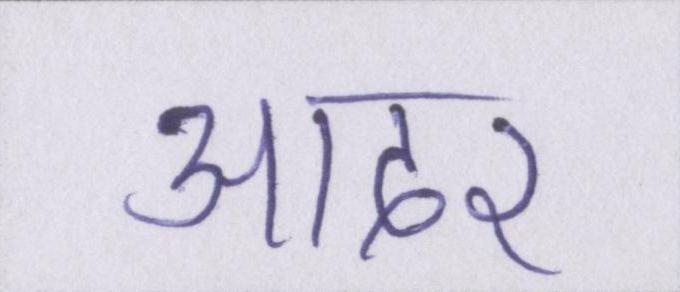 आदर